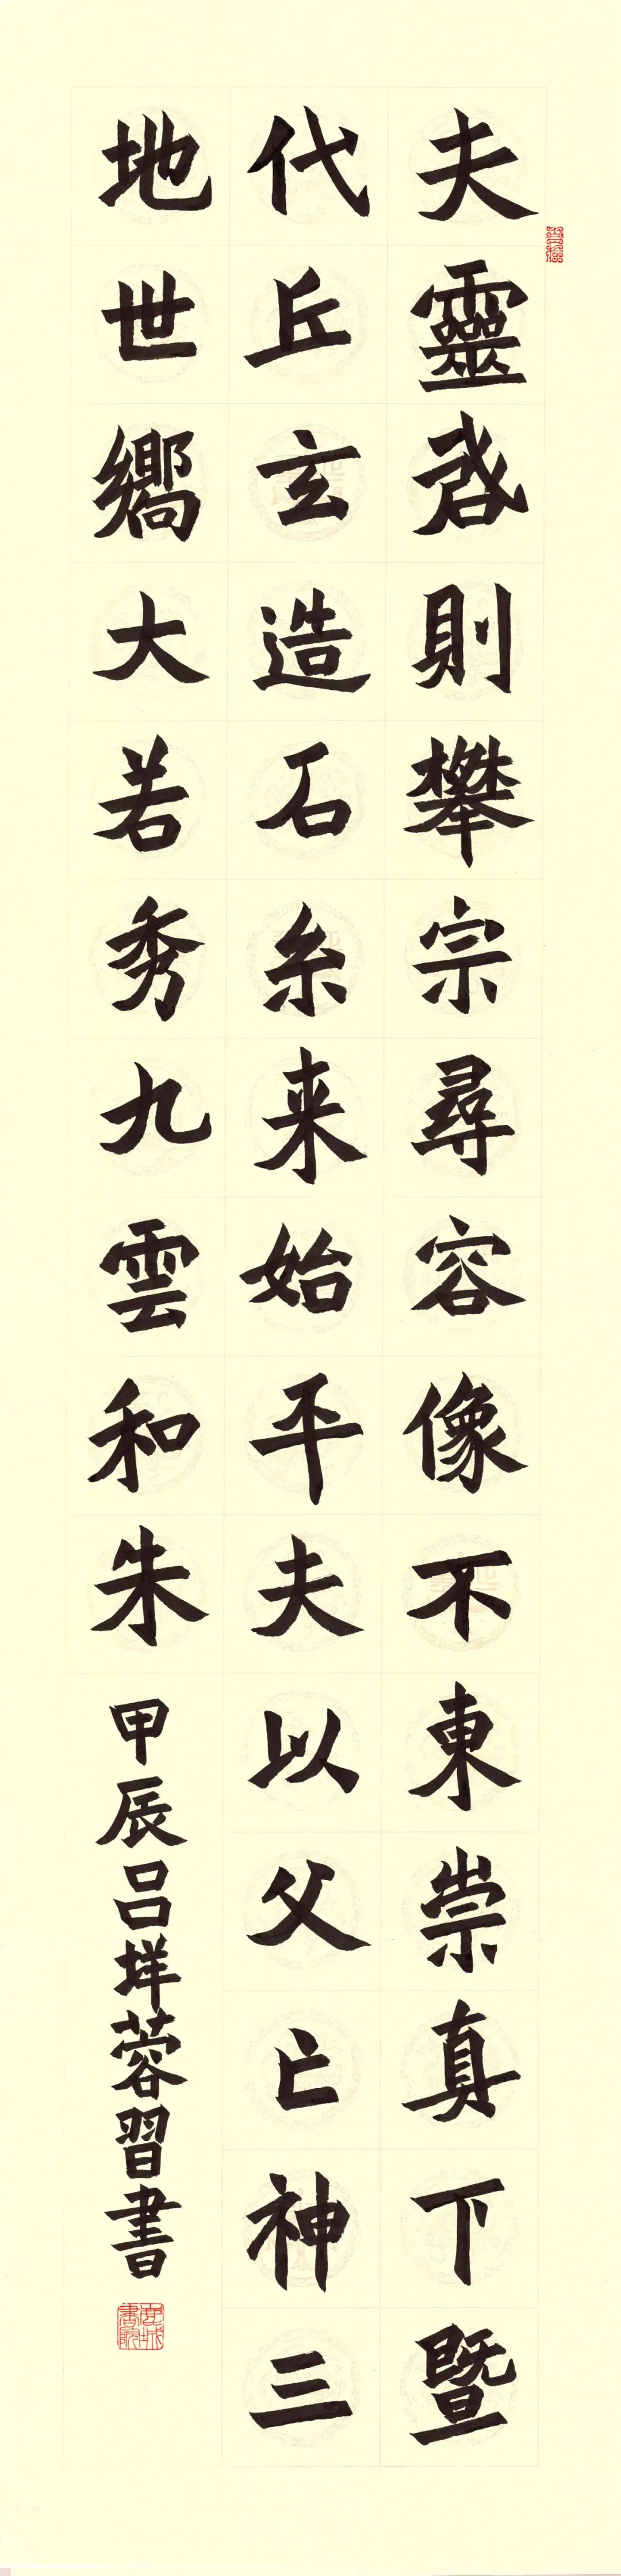 夫靈啓則攀宗尋容像不東崇真下暨
代丘玄造石糸来始平夫以父亡神三
地世嚮大若秀九雲和朱
甲辰吕垟蓉習書